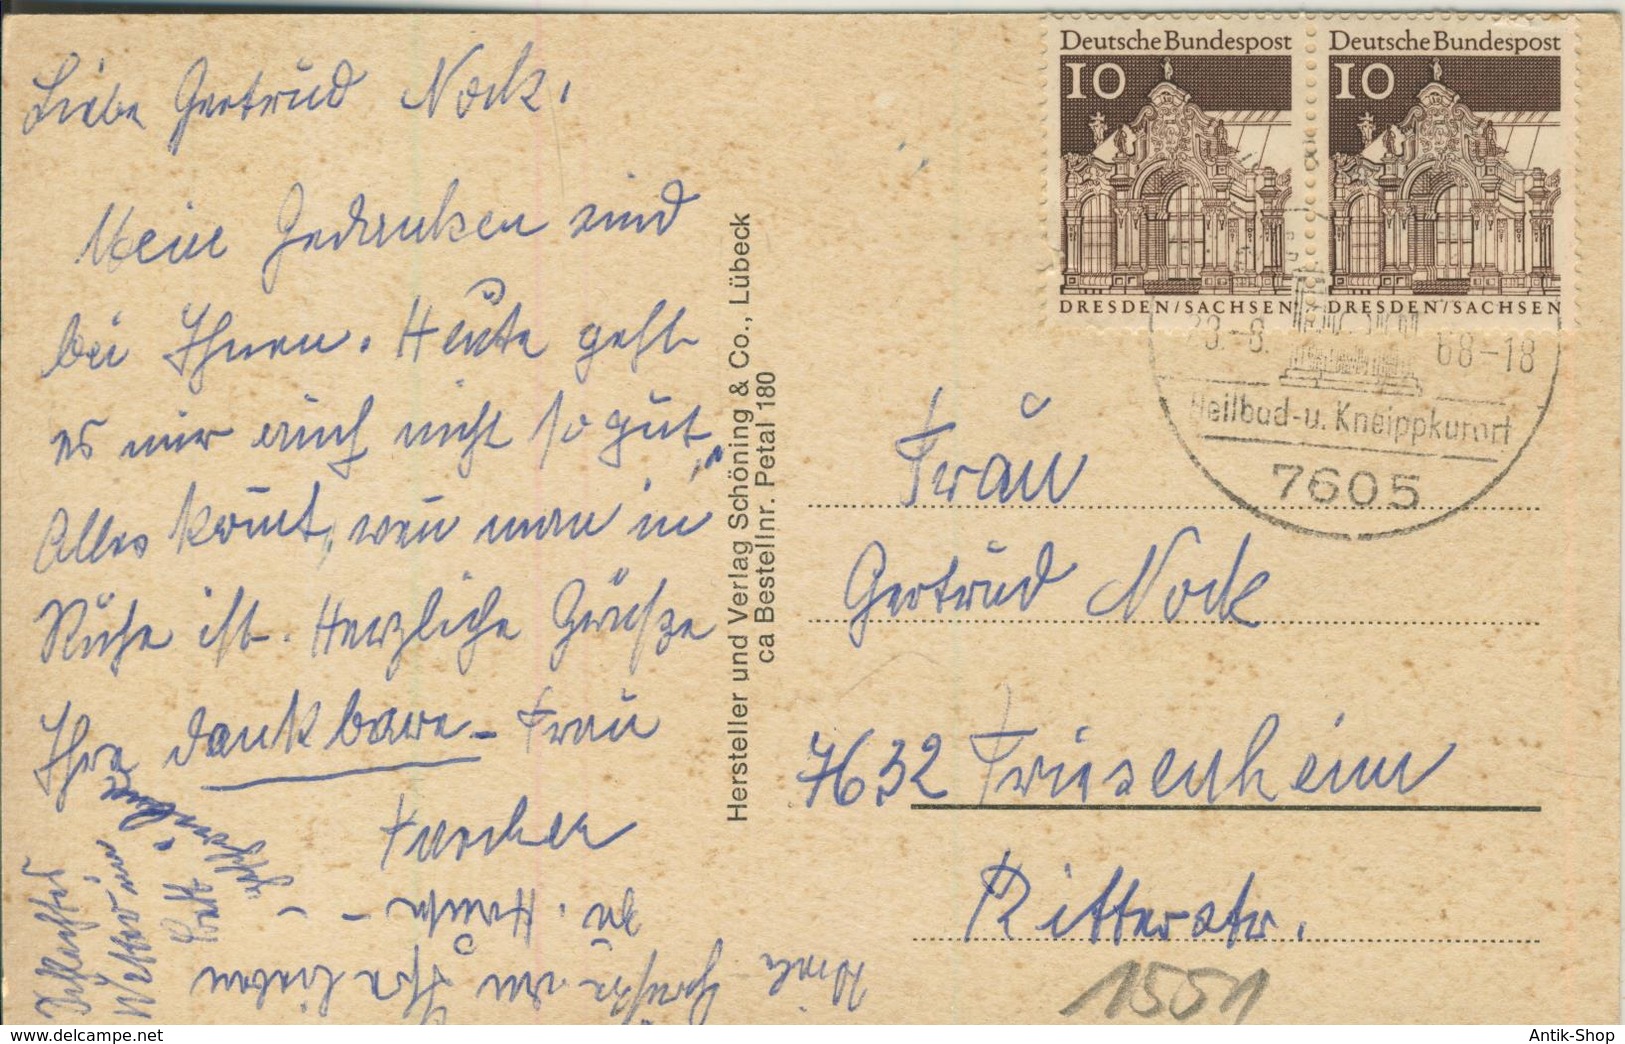 Liebe Gertrud Nock.
Meine Gedanken sind
bei Ihnen. Heute geht
es mir auch nicht so gut,
Alles kommt, wenn man in
Ruhe ist. Herzliche Grüsse
Ihre dankbare - Frau
Furcher
zu. Hause -
Grüsse an Ihre lieben
Viele
Schlechtes
Wetter im
Bett
Hersteller und Verlag Schöning & Co., Lübeck
ca Bestellnr. Petal 180
Deutsche Bundespost
10
DRESDEN/SACHSEN
Deutsche Bundespost
10
DRESDEN/SACHSEN
68-18
Heilbad-u. Kneippkurort
7605
Frau
Gertrud Nock
7632 Friesenheim
Ritterstr.
1551
delcampe.net
Antik-Shop